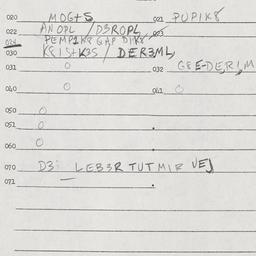 020 MOG+5 021 PUPIK8
022 ANOPL / D3ROPL 023
024 PEMP1K8 GAP DIK8
030 K8IS+K3S / DER3ML,
031 0 032 G8E-DER,M
040 0 041 0
050 0
051 0
060 0
070 D3: LEB3R TUT MIR VEJ
071 —